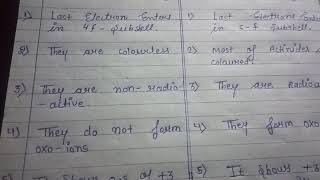 1) Last Electron Enters
in 4f - subshell.
2) They are colourless
3) They are non-radio
-active.
4) They do not form
oxo-ions
1) Last Electrons Enters
in 5-f subshell.
2) Most of Actinides
coloured.
3) They are Radioa
4) They form oxo
5) It shows +3
of +3